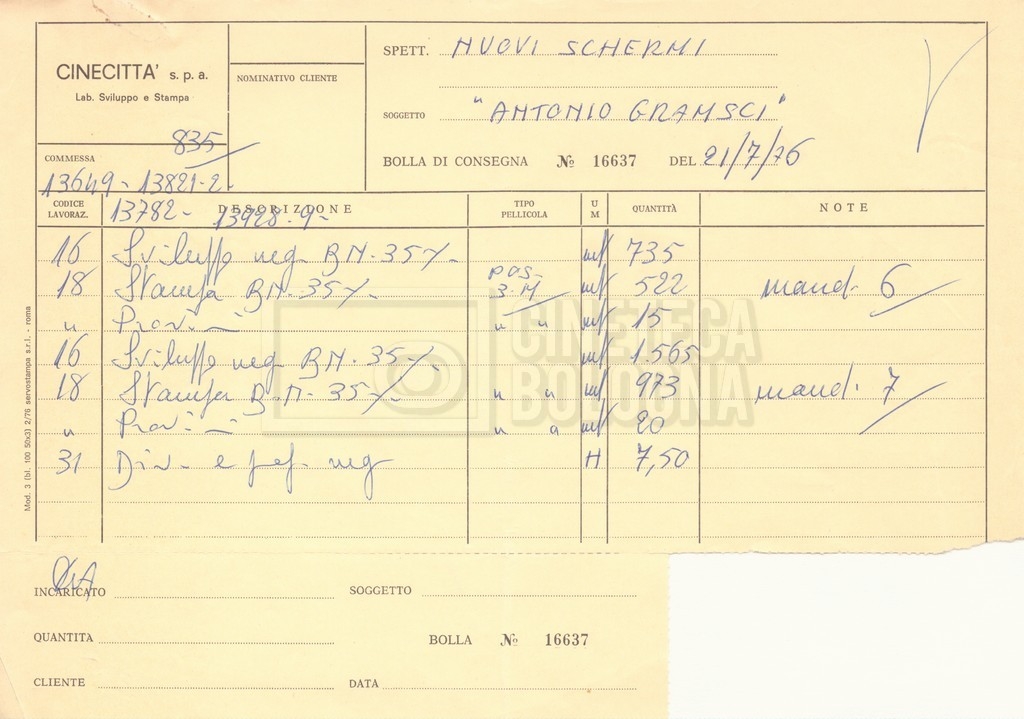 CINECITTA' s. p. a.
Lab. Sviluppo e Stampa
NOMINATIVO CLIENTE
SPETT. NUOVI SCHERMI
SOGGETTO "ANTONIO GRAMSCI"
BOLLA DI CONSEGNA № 16637 DEL 21/7/76
835
COMMESSA
13649 - 13821-2-
13782 - 13928-9-
CODICE LAVORAZ. DESCRIZIONE TIPO PELLICOLA U M QUANTITÀ NOTE
16 Sviluppo neg. BN. 35 mt 735
18 Stampa BN. 35 POS. 3.M mt 522 mand. 6
" Provini " " mt 15
16 Sviluppo neg BN. 35 mt 1.565
18 Stampa B.N. 35 " " mt 973 mand. 7
" Provini " " mt 20
31 Div. e neg H 7,50
CINETECA
BOLOGNA
Mod. 3 (bl. 100 50x3) 2/76 servostampa s.r.l. - roma
INCARICATO SOGGETTO
QUANTITA BOLLA № 16637
CLIENTE DATA